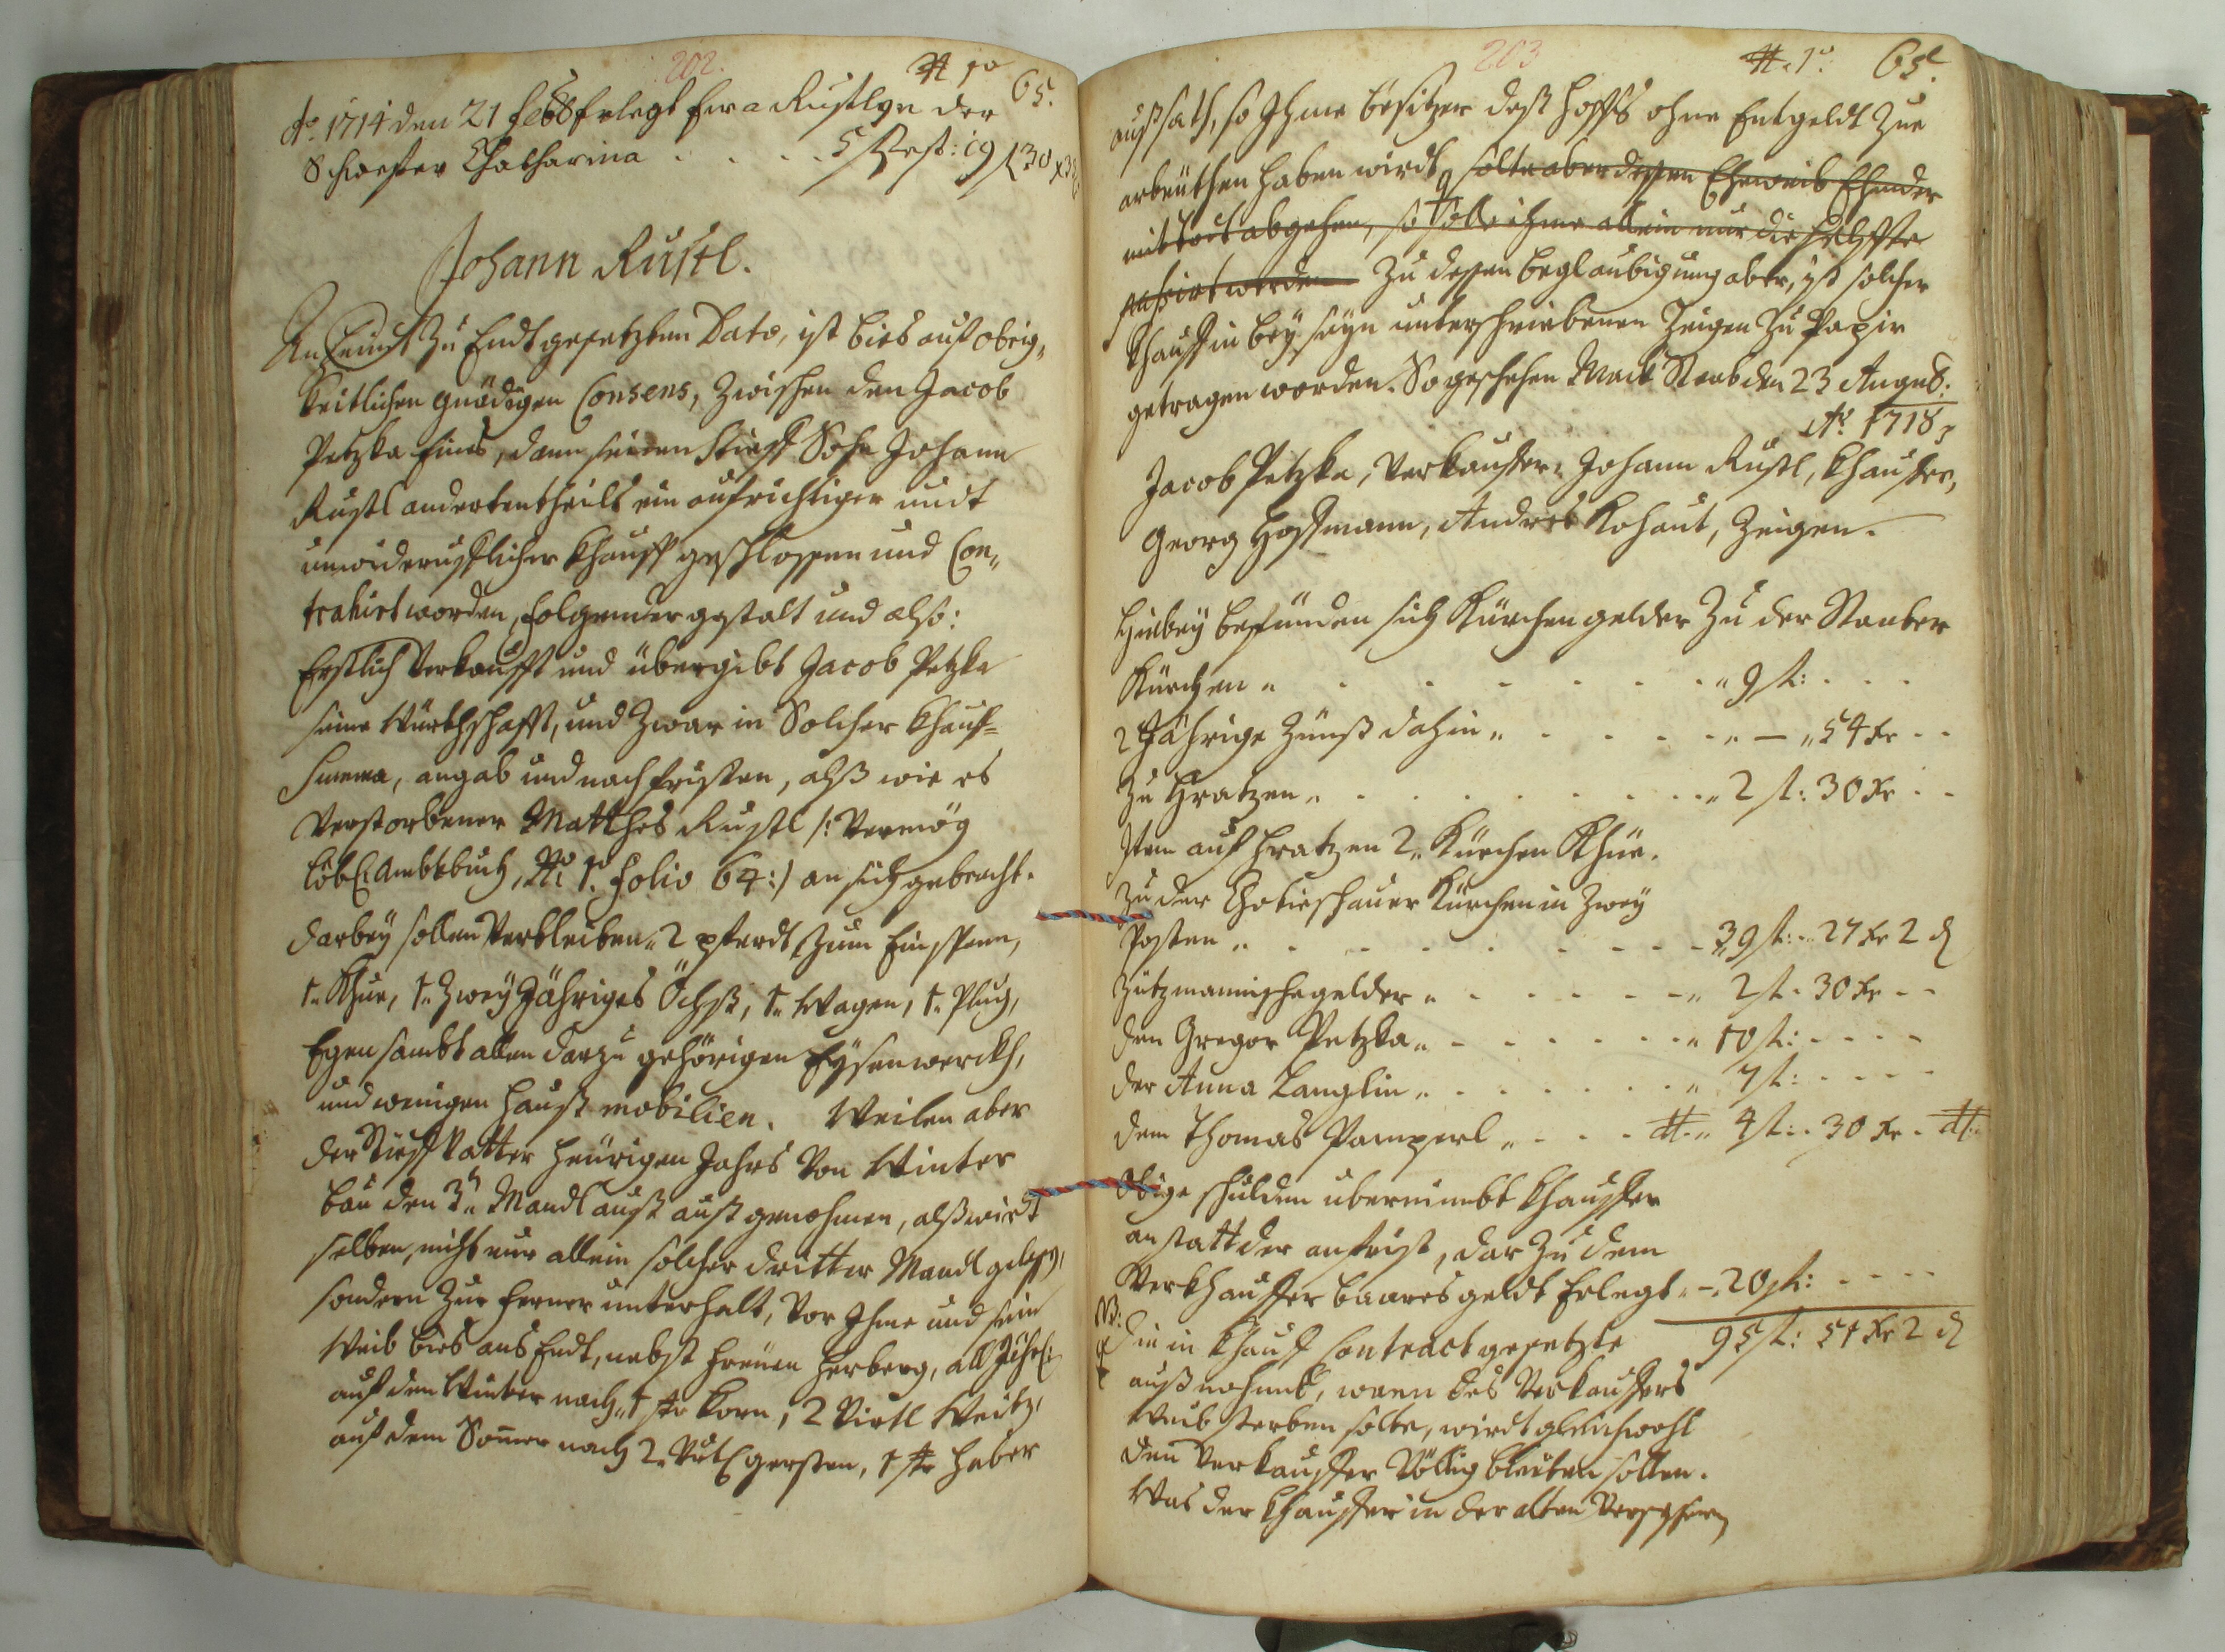 202.
N 1o 65.
Ao. 1714 den 21 Feb8 Erlegt Ewa Rustlyn der
Schwester Catharina . . . . 5 Rest: 19 f 30 x 3
Johann Rustl.
An Heunt Zu Endt gesetzten Dato, ist bies auf obrig„
Keitlichen gnädigen Consens, Zwischen den Jacob
Petzka Eines, dann seinen Stieff Sohn Johann
Rustl andertentheils ein aufrichtiger undt
unwiderrufflicher Khauff geschlossen und Con„
trahirt worden, folgender gestalt und also:
Erstlich Verkaufft und übergibt Jacob Petzka
seine Würthschafft, und Zwar in Solcher Khauf=
Summa, angab und nachfristen, alß wie es
Verstorbener Matthes Rustl /: Vermög
löbl: Ambtbuch, No 1o folio 64:/ an sich gebracht.
darbey sollen Verbleiben„ 2 pferdt Zum Einspan,
1„ Khue, 1„ Zwey Jähriges Öchßl, 1„ Wagen, 1„ Pflug,
Egen sambt allen darzu gehörigen Eysenwerckh,
und wenigen Hauß mobilien. Weilen aber
der Stieff Vatter heürigen Jahrs Von Winter
bau den 3„ Mandl auß auß genohmen, alß wirdt
selben, nicht nur allein solcher dritter Mandl gelassen,
sondern Zur ferner unterhalt, Vor Ihme und sein
Weib bies ans Endt, nebst freüen Herberg, all Jährl:
auf den Winter nach„ 1 str Korn, 2 Virtl Weitz,
auf dem Som̄er nach 2„ Virtl gersten, 1 str Haber
203
N. 1o. 65.
außsath, so Ihme besitzer deß Hoffs ohne Entgeldt Zue
arbeüthen haben wirdt, solte aber dessen Eheweib Ehender
mit todt abgehen, so solle ihme allein nur die Helffte
passirt werden Zu dessen beglaubigung aber, ist solcher
Khauff in beysayn unterschriebenen Zeigen Zu Papir
getragen worden. So geschehen Mark Staab den 23 August.
Ao. 1718
Jacob Petzka, Verkauffer, Johann Rustl, Khauffer,
Georg Hoffmann, Andres Kohaut, Zeigen.
Hiebey befünden sich Kürchengelder Zu der Staaber
Kürchen „ . . . . . „ 9 fl: . . .
2 Jährige Zünß dahin „ . . . . „ — „ 54 kr . .
Zu Hratzen „ . . . . . „ 2 fl: 30 kr . .
Item auf Hratzen 2„ Kürchen Khüe.
Zu der Chotieschauer Kürchen in Zwey
Posten „ . . . . . 39 fl: „ 27 kr 2 d
Hutzmannische gelder „ . . . . „ 2 fl. 30 kr - -
den Gregor Petzka „ - - - - „ 10 fl: - - - -
der Anna Langlin „ . . . . „ 7 fl: - - - -
dem Thomas Pamperl „ - - - # „ 4 fl: . 30 kr . #
Obige schulden übernimbt Khauffer
anstatt der anfrist, dar Zu dem
Verkhauffer baares geldt Erlegt „ - 20 fl: - - - -
95 fl: 51 kr 2 d
NB:
Die in Khauf Contract gesetzte
außnahmb, wenn des Verkauffers
Weib sterben solte, wirdt gleichwohl
den Verkauffer Völlig bleiben sollen.
Was der Khauffer in der alten